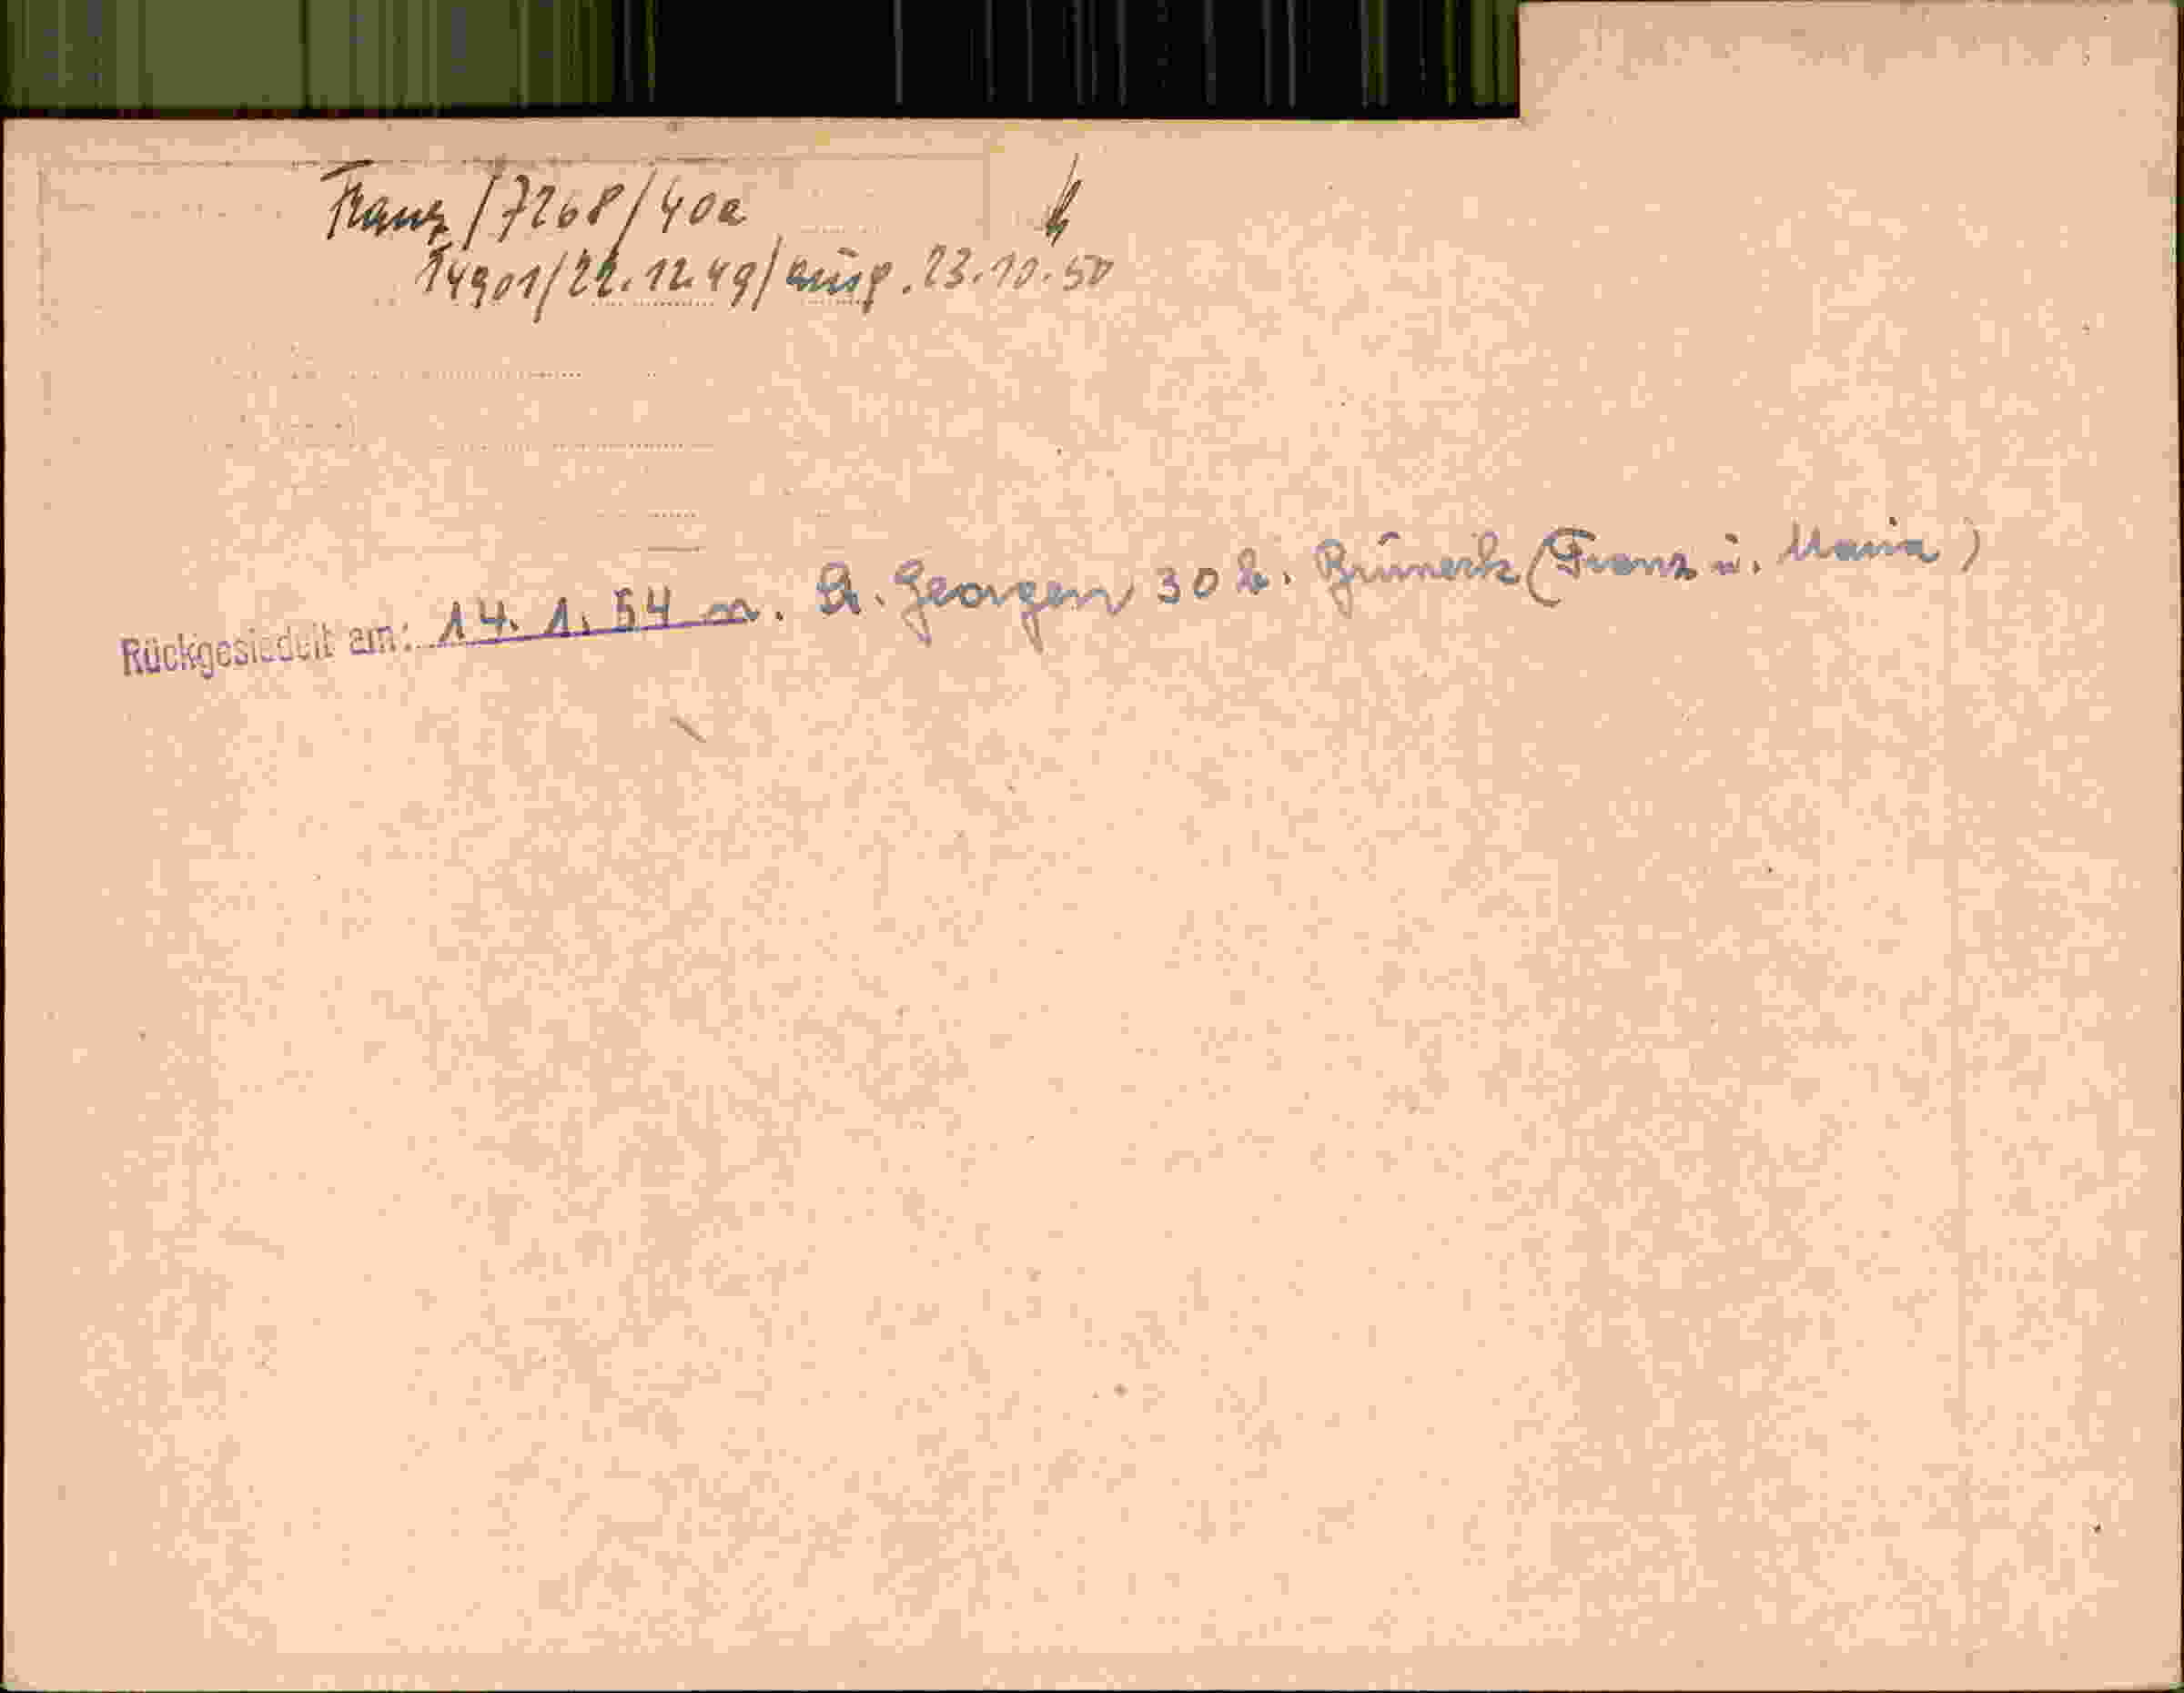 Franz / 7268 / 40a
14901 / 22.12.49 / ausg. 23.10.50
Rückgesiedelt am: 14. 1. 54 n. St. Georgen 30 b. Bruneck (Franz u. Maria)